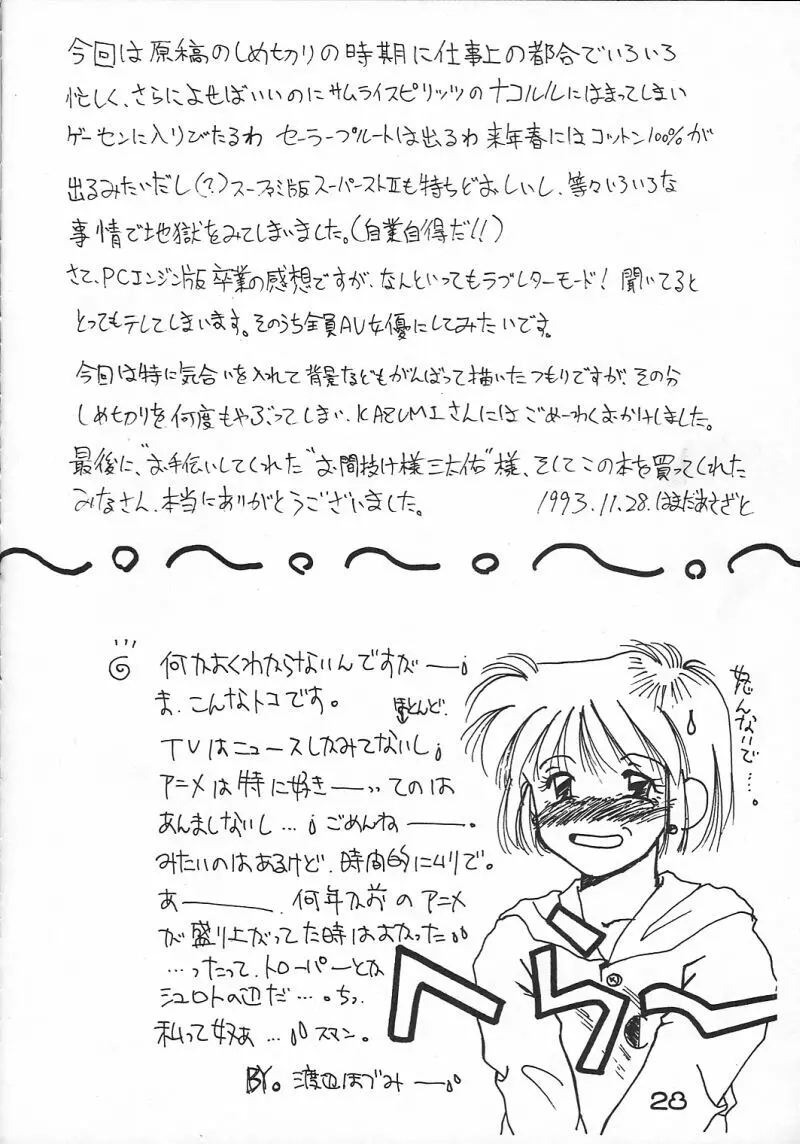 今回は原稿のしめ切りの時期に仕事上の都合でいろいろ
忙しく、さらによせばいいのにサムライスピリッツのナコルルにはまってしまい
ゲーセンに入りびたるわ セーラープルートは出るわ 来年春にはコットン100%が
出るみたいだし(?)スーファミ版スーパーストⅡも待ちどおしいし、等々いろいろな
事情で地獄をみてしまいました。(自業自得だ!!)
さて、PCエンジン版卒業の感想ですが、なんといってもラブレターモード! 聞いてると
とってもテレてしまいます。そのうち全員AV女優にしてみたいです。
今回は特に気合いを入れて背景などもがんばって描いたつもりですが、その分
しめ切りを何度もやぶってしまい、KAZUMIさんにはごめーわくおかけしました。
最後に、"お手伝いしてくれた"お間抜け様三太佑"様、そしてこの本を買ってくれた
みなさん、本当にありがとうございました。 1993.11.28.はまだあさざと
何かよくわからないんですがー
ま、こんなトコです。 ほとんど
TVはニュースしかみてないし
アニメは特に好きー…ってのは
あんましないし…ごめんねー
みたいのはあるけど、時間的にムリで。
あー、何年か前のアニメ
が盛り上がってた時はよかった
…ったって、トローパーとか
シュロトの辺だ…
私って奴ぁ… スマン。
BY。渡辺ほづみー
なんないで…。
へへへ
28